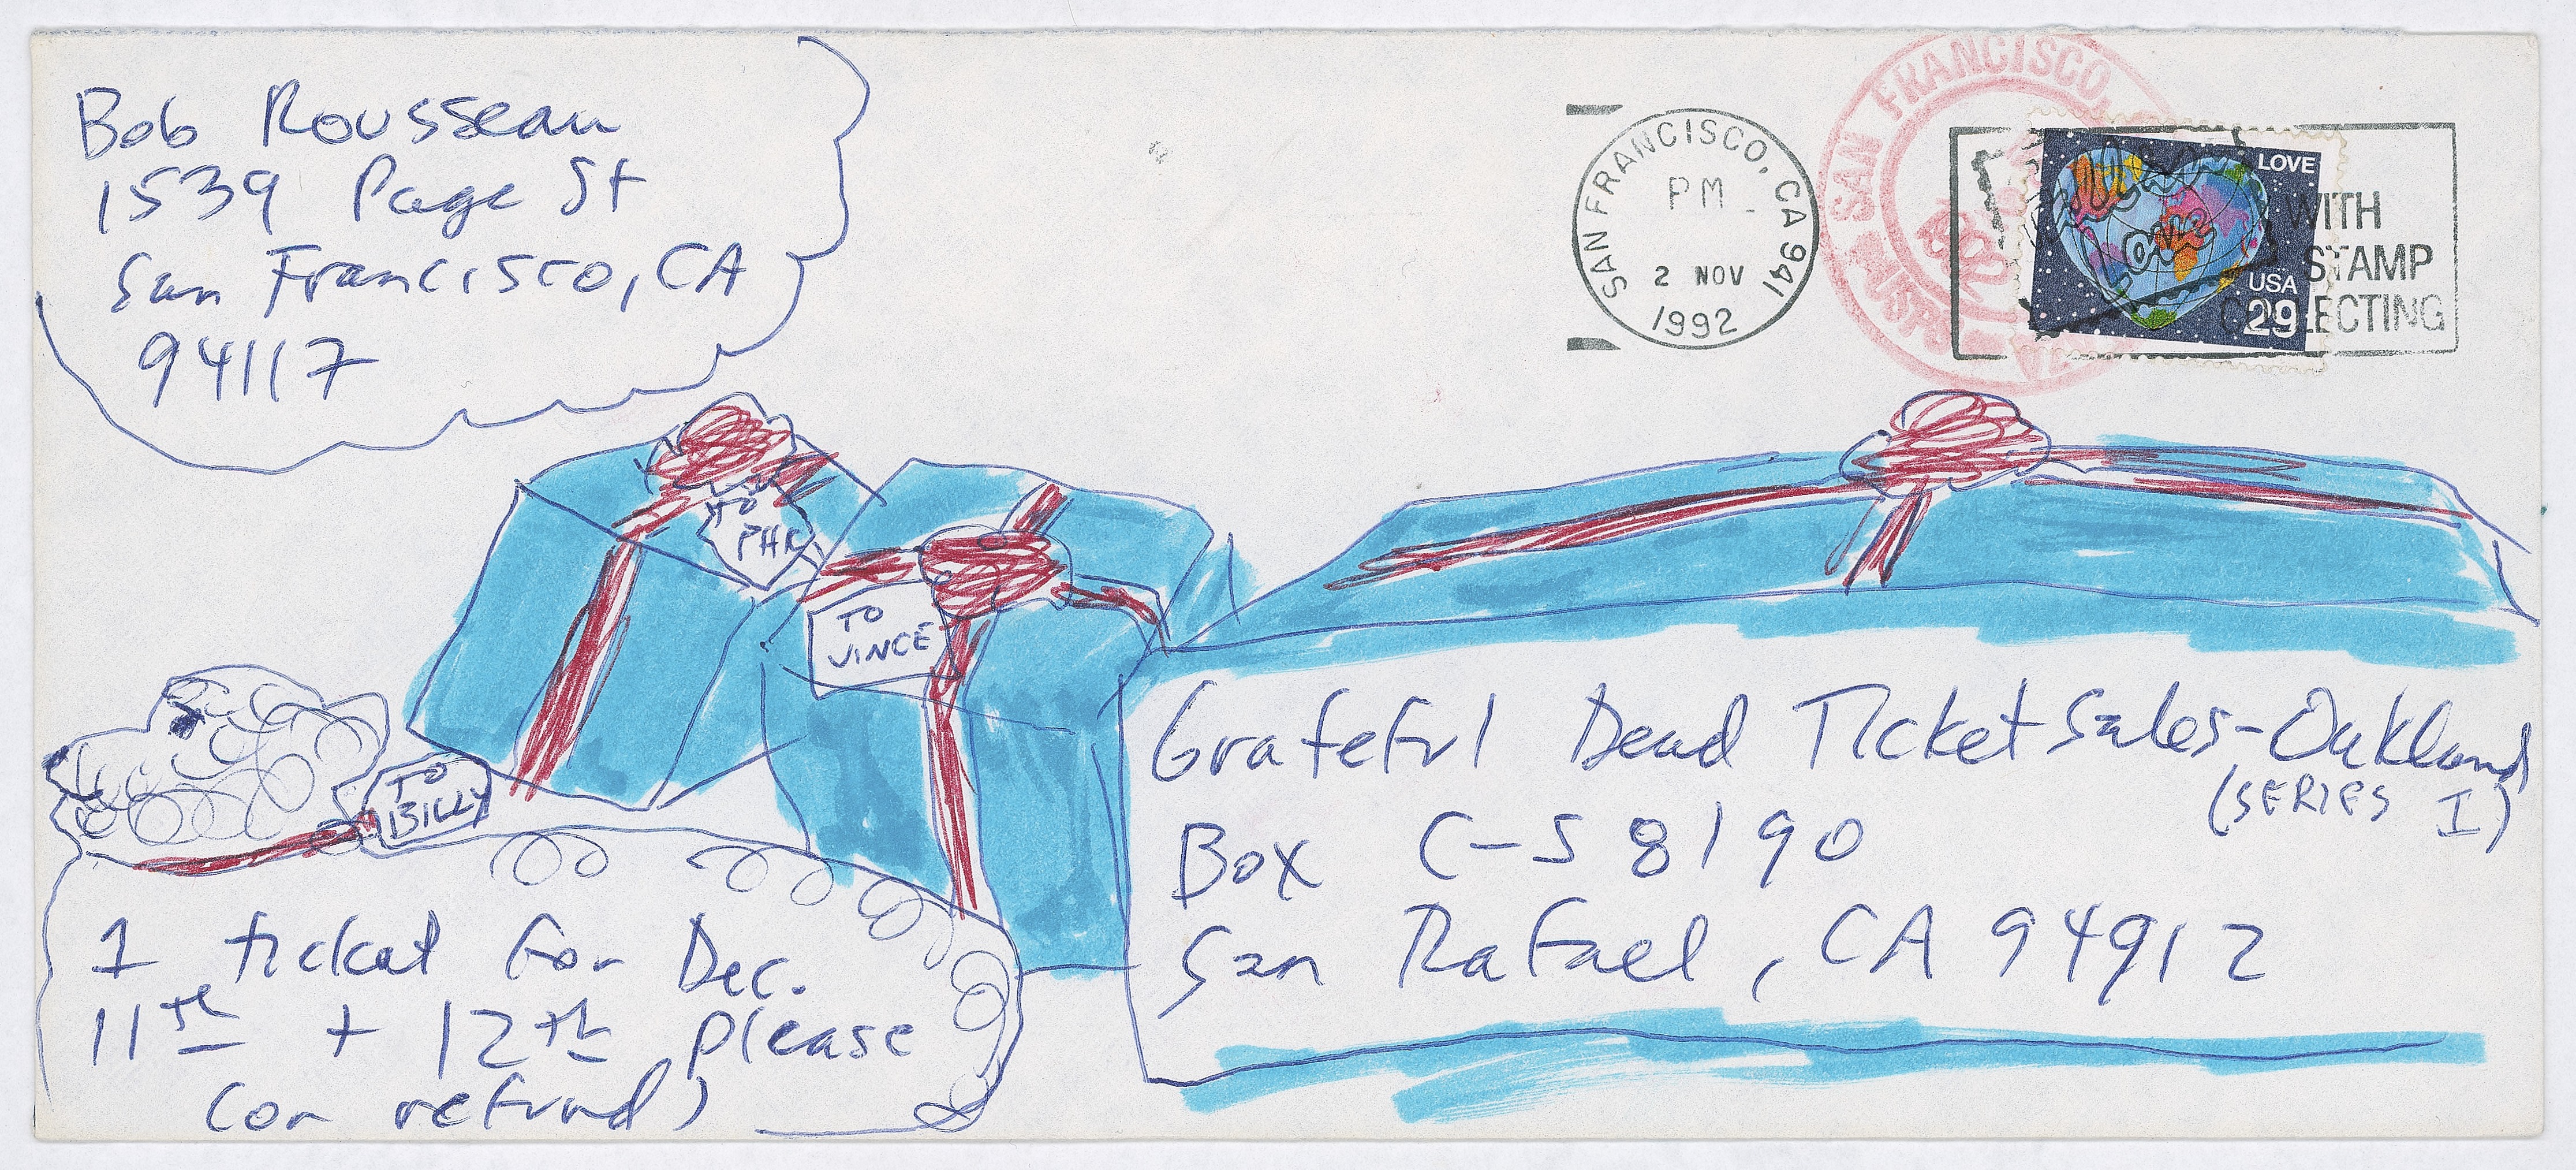 Bob Rousseau
1539 Page St
San Francisco, CA
94117
SAN FRANCISCO, CA 941
PM
2 NOV
1992
SAN FRANCISCO,
USPO
WITH
STAMP
COLLECTING
LOVE
Love
USA
29
TO
PHIL
TO
VINCE
TO
BILLY
Grateful Dead Ticket Sales-Oakland
(SERIES I)
Box C-S 8190
San Rafael, CA 94912
1 ticket for Dec.
11th + 12th please
(or refund)